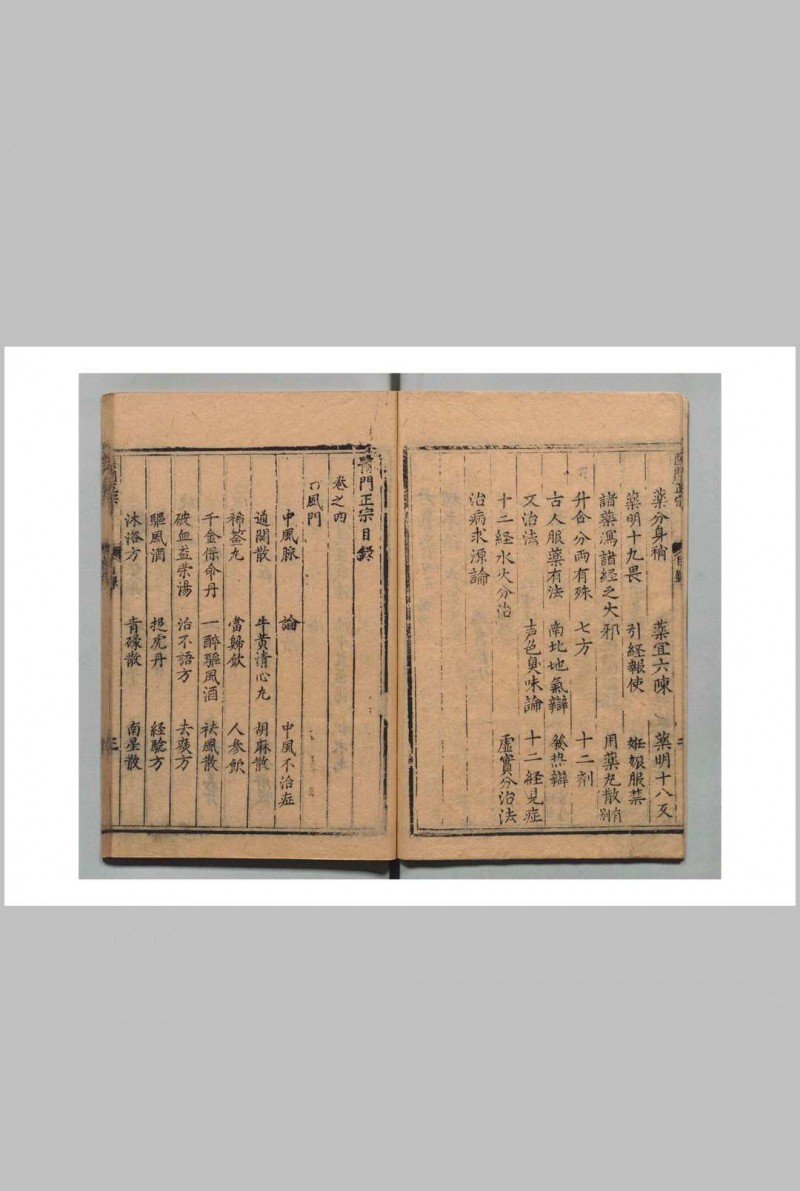 薬分身稍　薬宜六陳　薬明十八反
薬明十九畏　引経報使　妊娠服禁
諸薬瀉諸経之火邪　用薬丸散有別
升合分两有殊　七方　十二剤
古人服薬有法　南北地氣辯　發热辯
又治法　声色臭味論　十二経見症
十二経水火分治　虚實分治法
治病求源論
醫門正宗目録
卷之四
風門
中風脉　論　中風不治症
通関散　牛黄清心丸　胡麻散
稀莶丸　當歸飲　人参飲
千金保命丹　一醉驅風酒　袪風散
破血益荣湯　治不語方　去痰方
驅風酒　捉虎丹　経驗方
沐浴方　青礞散　南星散